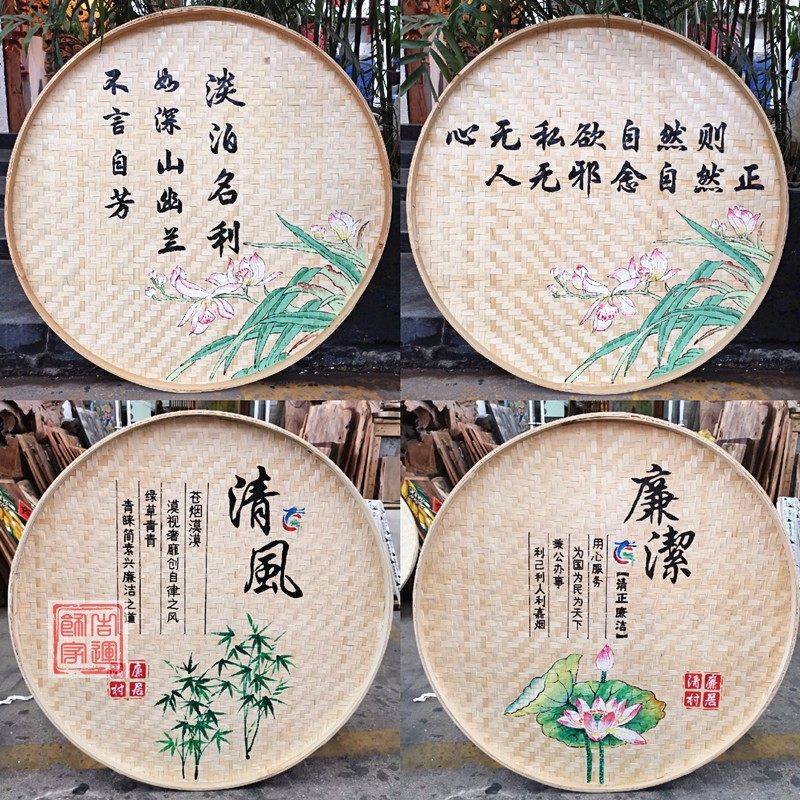 淡泊名利
如深山幽兰
不言自芳
心无私欲自然则
人无邪念自然正
清風
苍烟漠漠
漠视奢靡创自律之风
绿草青青
青睐简素兴廉洁之道
廉居
村
吉運
飾家
廉潔
【清正廉洁】
用心服务
为国为民为天下
秉公办事
利己利人利嘉烟
廉居
清村